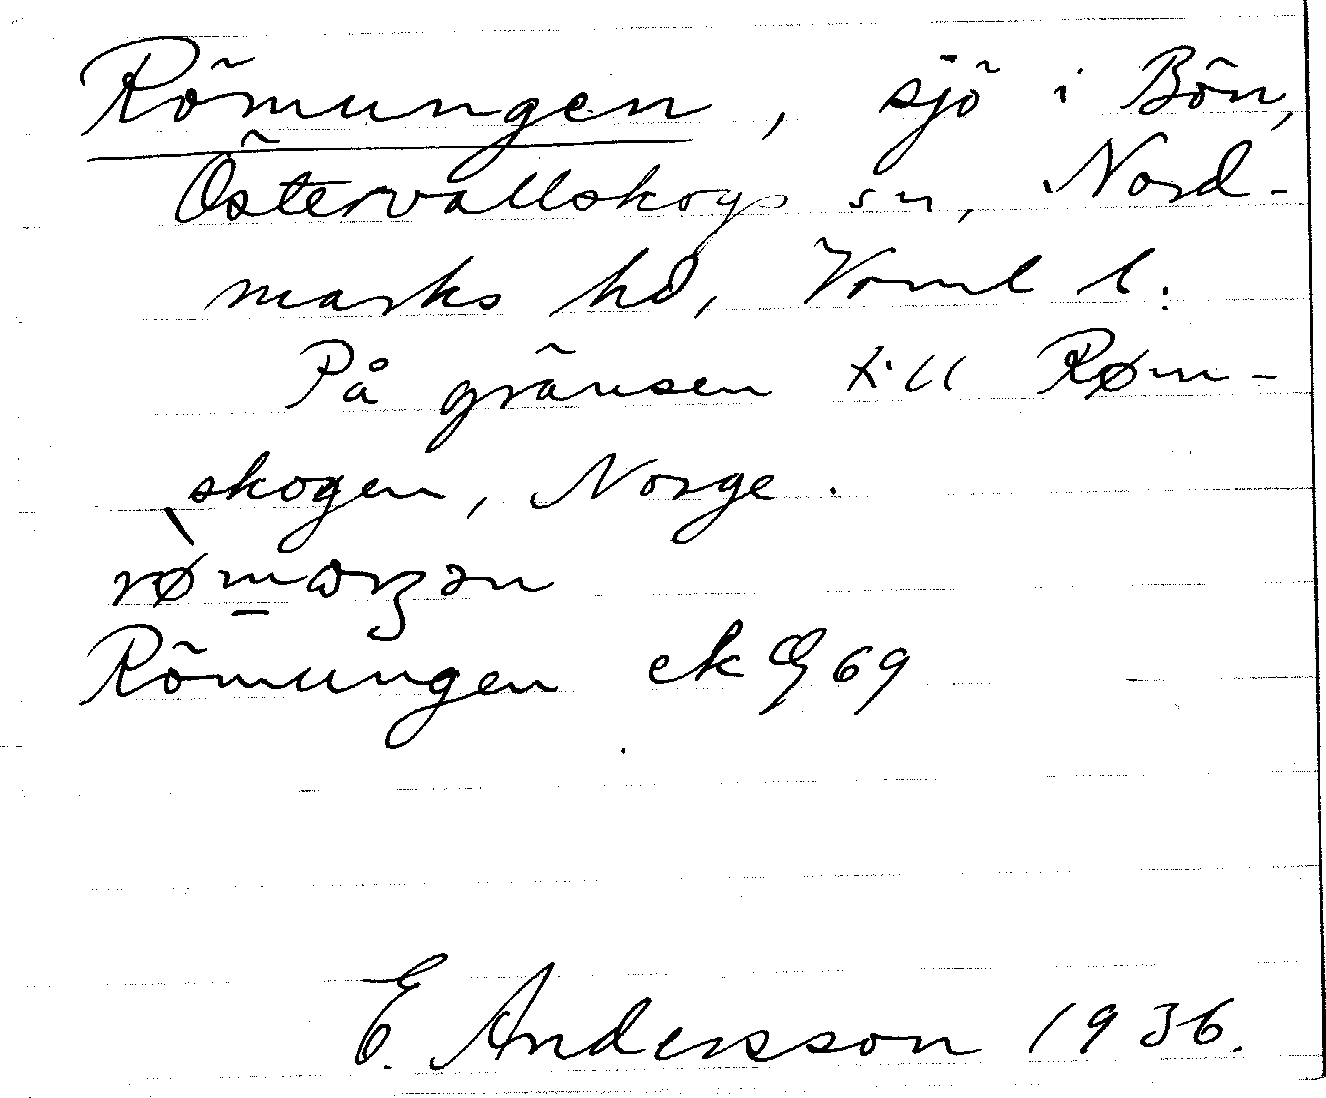 Römungen, sjö i Bön,
Östervallskogs sn, Nord-
marks hd, Vrml l.
På gränsen till Røm-
skogen, Norge.
Römungen ek G 69
E. Andersson 1936.